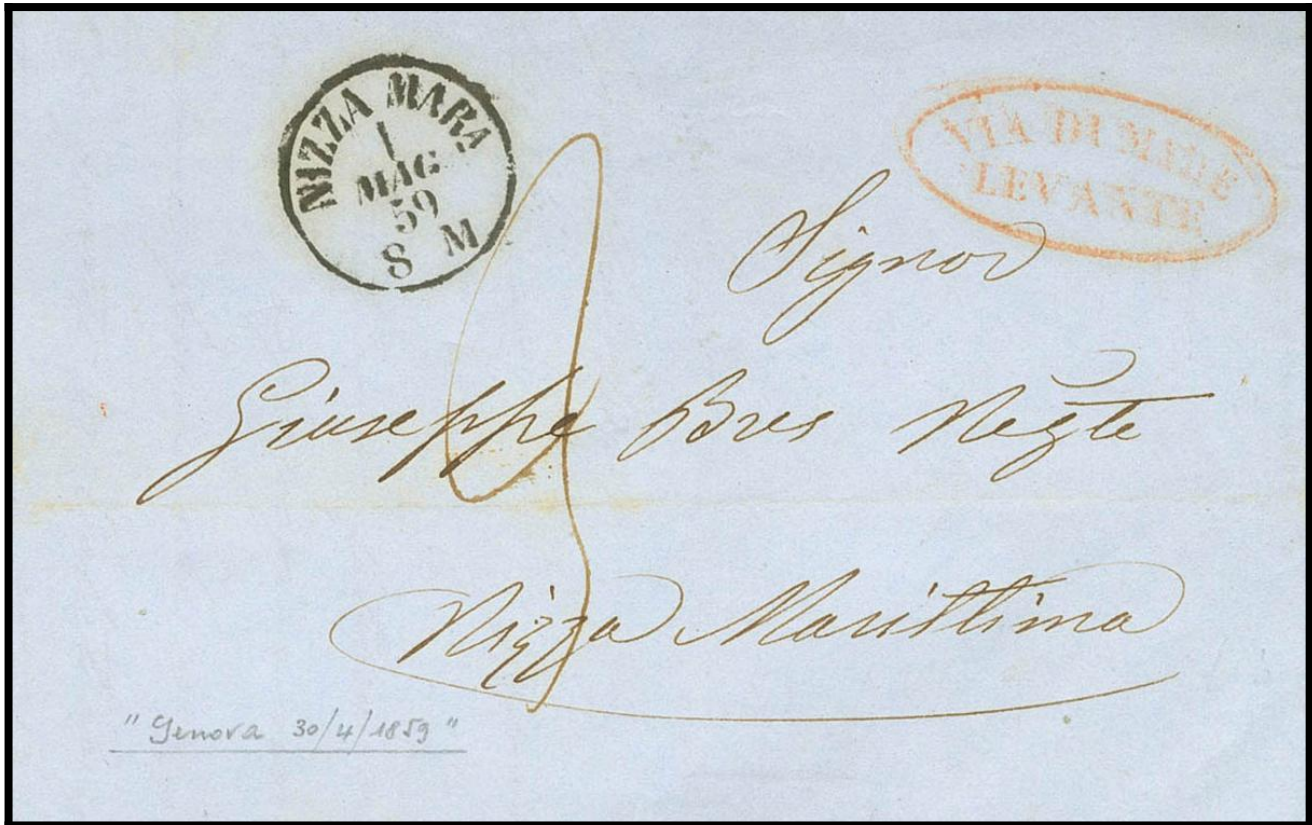 NIZZA MARA
1
MAG
59
8 M
VIA DI MARE
LEVANTE
Signor
Giuseppe Bres Negte
Nizza Marittima
3
"Genova 30/4/1859"